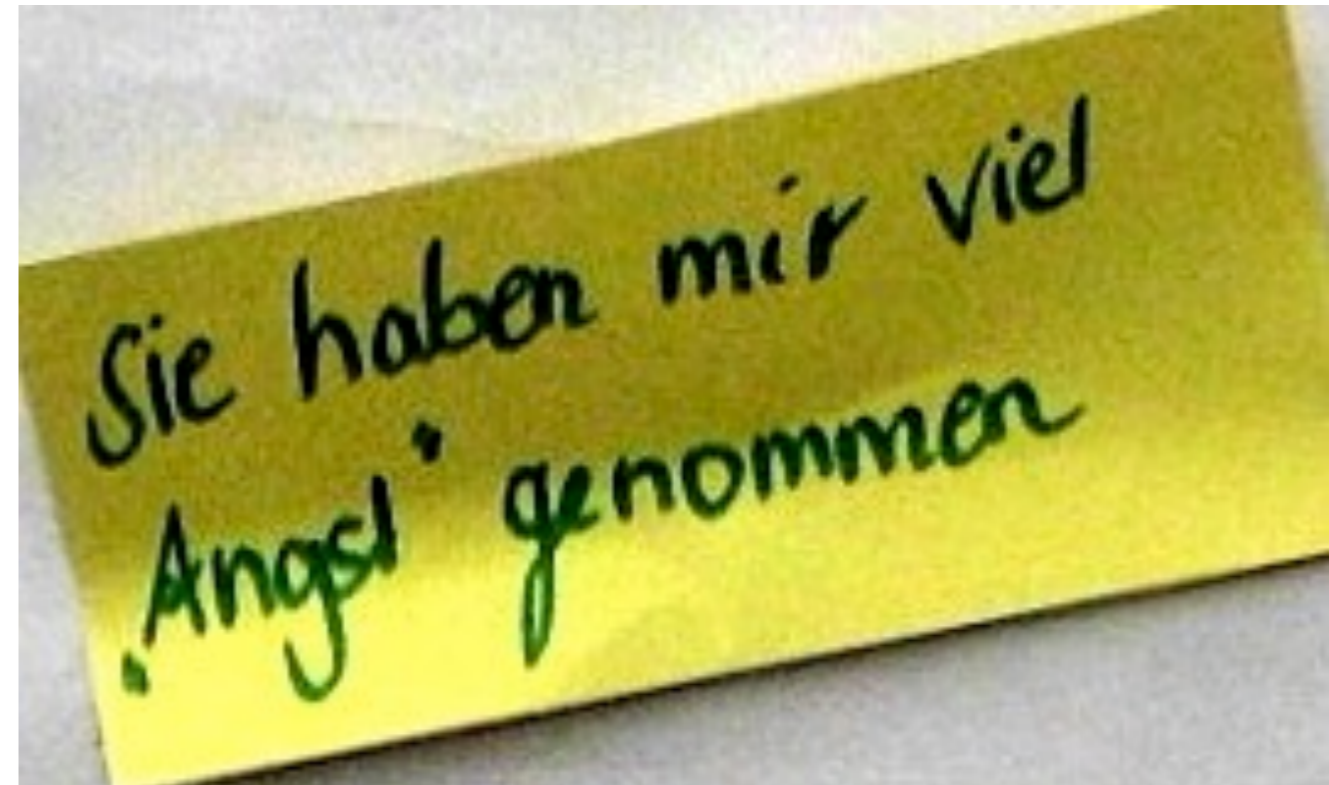 Sie haben mir viel
"Angst" genommen